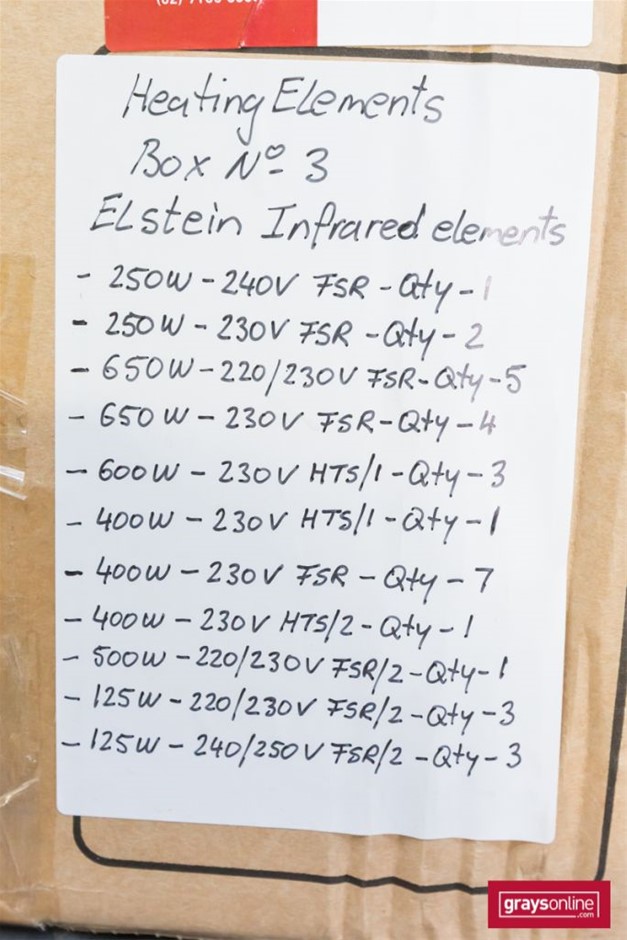 Heating Elements
Box Nº 3
ELstein Infrared elements
- 250W - 240V FSR - Qty - 1
- 250W - 230V FSR - Qty - 2
- 650W - 220/230V FSR - Qty - 5
- 650W - 230V FSR - Qty - 4
- 600W - 230V HTS/1 - Qty - 3
- 400W - 230V HTS/1 - Qty - 1
- 400W - 230V FSR - Qty - 7
- 400W - 230V HTS/2 - Qty - 1
- 500W - 220/230V FSR/2 - Qty - 1
- 125W - 220/230V FSR/2 - Qty - 3
- 125W - 240/250V FSR/2 - Qty - 3
graysonline
.com